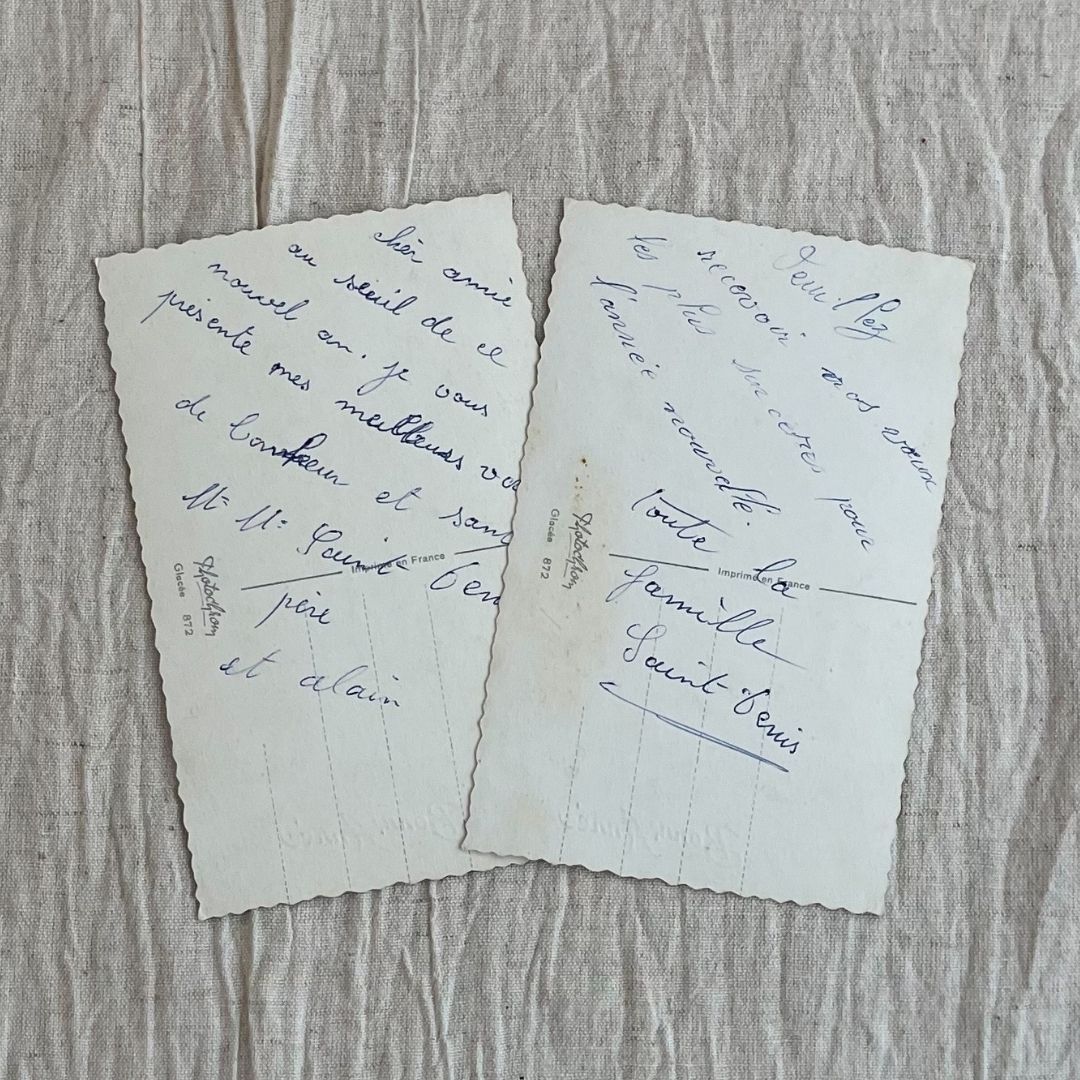 chèr amie
au seuil de ce
nouvel an. je vous
présente mes meilleurs
de bonheur et
Mr Me Saint
père
et alain
Imprimé en France
Photochrom
Glacée 872
Veuillez
recevoir nos voeux
les plus sincères pour
l'année nouvelle.
Toute la
famille
Saint Denis
Imprimé en France
Photochrom
Glacée 872